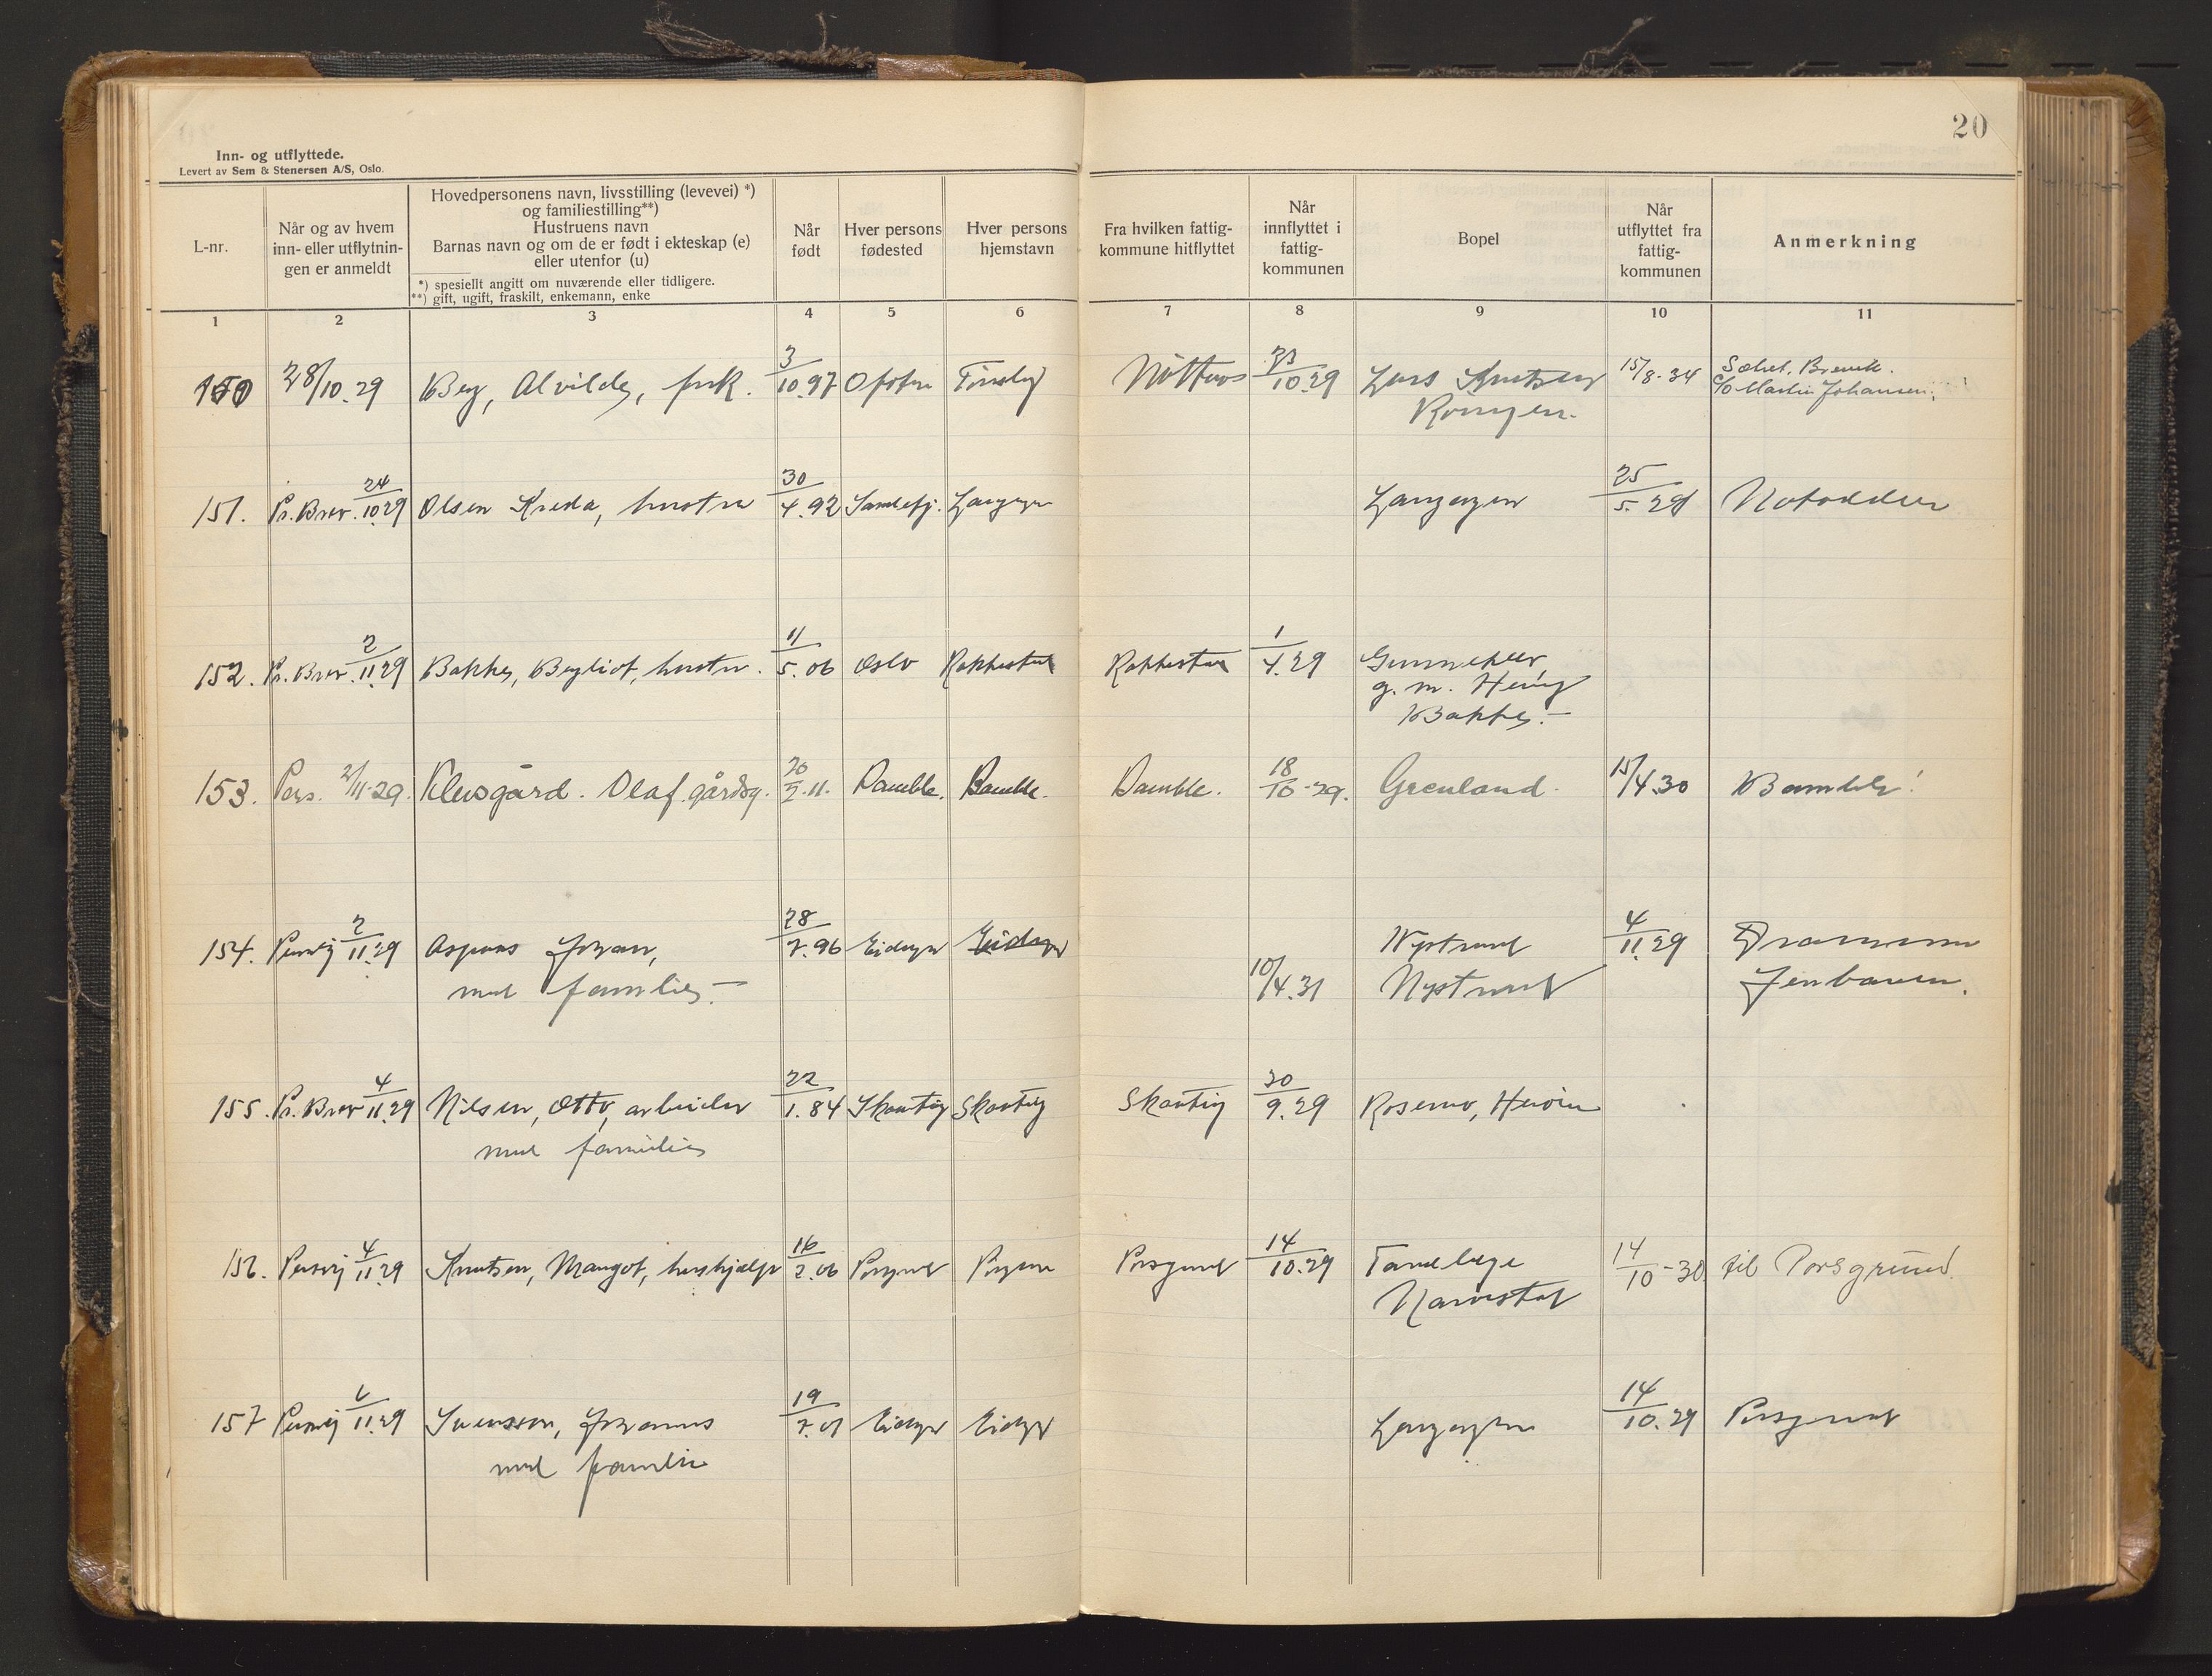 20
Inn- og utflyttede.
Levert av Sem & Stenersen A/S, Oslo.
L-nr.
Når og av hvem
inn- eller utflytnin-
gen er anmeldt
Hovedpersonens navn, livsstilling (levevei) *)
og familiestilling**)
Hustruens navn
Barnas navn og om de er født i ekteskap (e)
eller utenfor (u)
*) spesiellt angitt om nuværende eller tidligere.
**) gift, ugift, fraskilt, enkemann, enke
Når
født
Hver persons
fødested
Hver persons
hjemstavn
Fra hvilken fattig-
kommune hitflyttet
Når
innflyttet i
fattig-
kommunen
Bopel
Når
utflyttet fra
fattig-
kommunen
Anmerkning
1 2 3 4 5 6 7 8 9 10 11
150 28/10.29 Berg, Alvilde, frk. 3/10.97 Ofoten 10.29 Lars Knutsen 15/8-34 Brevik.
c/o Martin Johansen.
151. Pr. Brev. 24/10.29 Olsen Kreda, hustru 30/4.92 Sandefj. Langangen Langangen 25/5.29 Notodden
152. Pr. Brev. 2/11.29 Bakke, Bergliot, hustru. 11/5.06 Oslo Rakkestad Rakkestad 1/4.29 Gunneklev
g. m. Henry
Bakke.-
153. Pers. 2/11-29. Klevsgård. Olaf. gårdsg. 20/2.11. Bamble. Bamble. Bamble. 18/10-29. Grenland. 15/4.30 Bamble!
154. Persolig 2/11.29 Johan, 28/7.96 Eidanger Eidanger Nystrand 4/11.29 Drammen
med familie.- 10/4.31 Nystrand Jernbanen.
155. Pr. Brev 4/11.29 Nilsen, Otto, arbeider 22/1.84 Skåtøy Skåtøy Skåtøy 20/9.29 Rosenvo, Herøien
med familie
156. 4/11.29 Knutsen, Margot, hushjælp 16/2.06 Porsgrund Porsgrund Porsgrund 14/10.29 Tandlege 14/10-30 til Porsgrund.
Narvestad
157 11.29 Svensson, Johannes 19/7.01 Eidanger Eidanger Langangen 14/10.29 Porsgrund
med familie